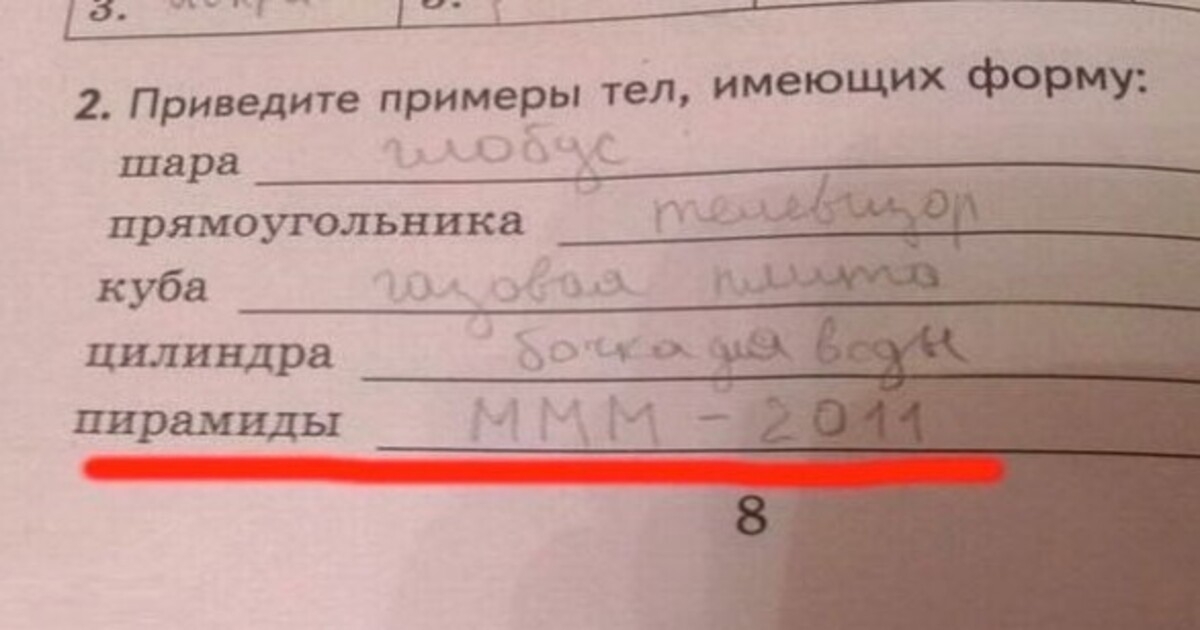 3. искра
2. Приведите примеры тел, имеющих форму:
шара глобус
прямоугольника телевизор
куба газовая плита
цилиндра бочка для воды
пирамиды МММ - 2011
8